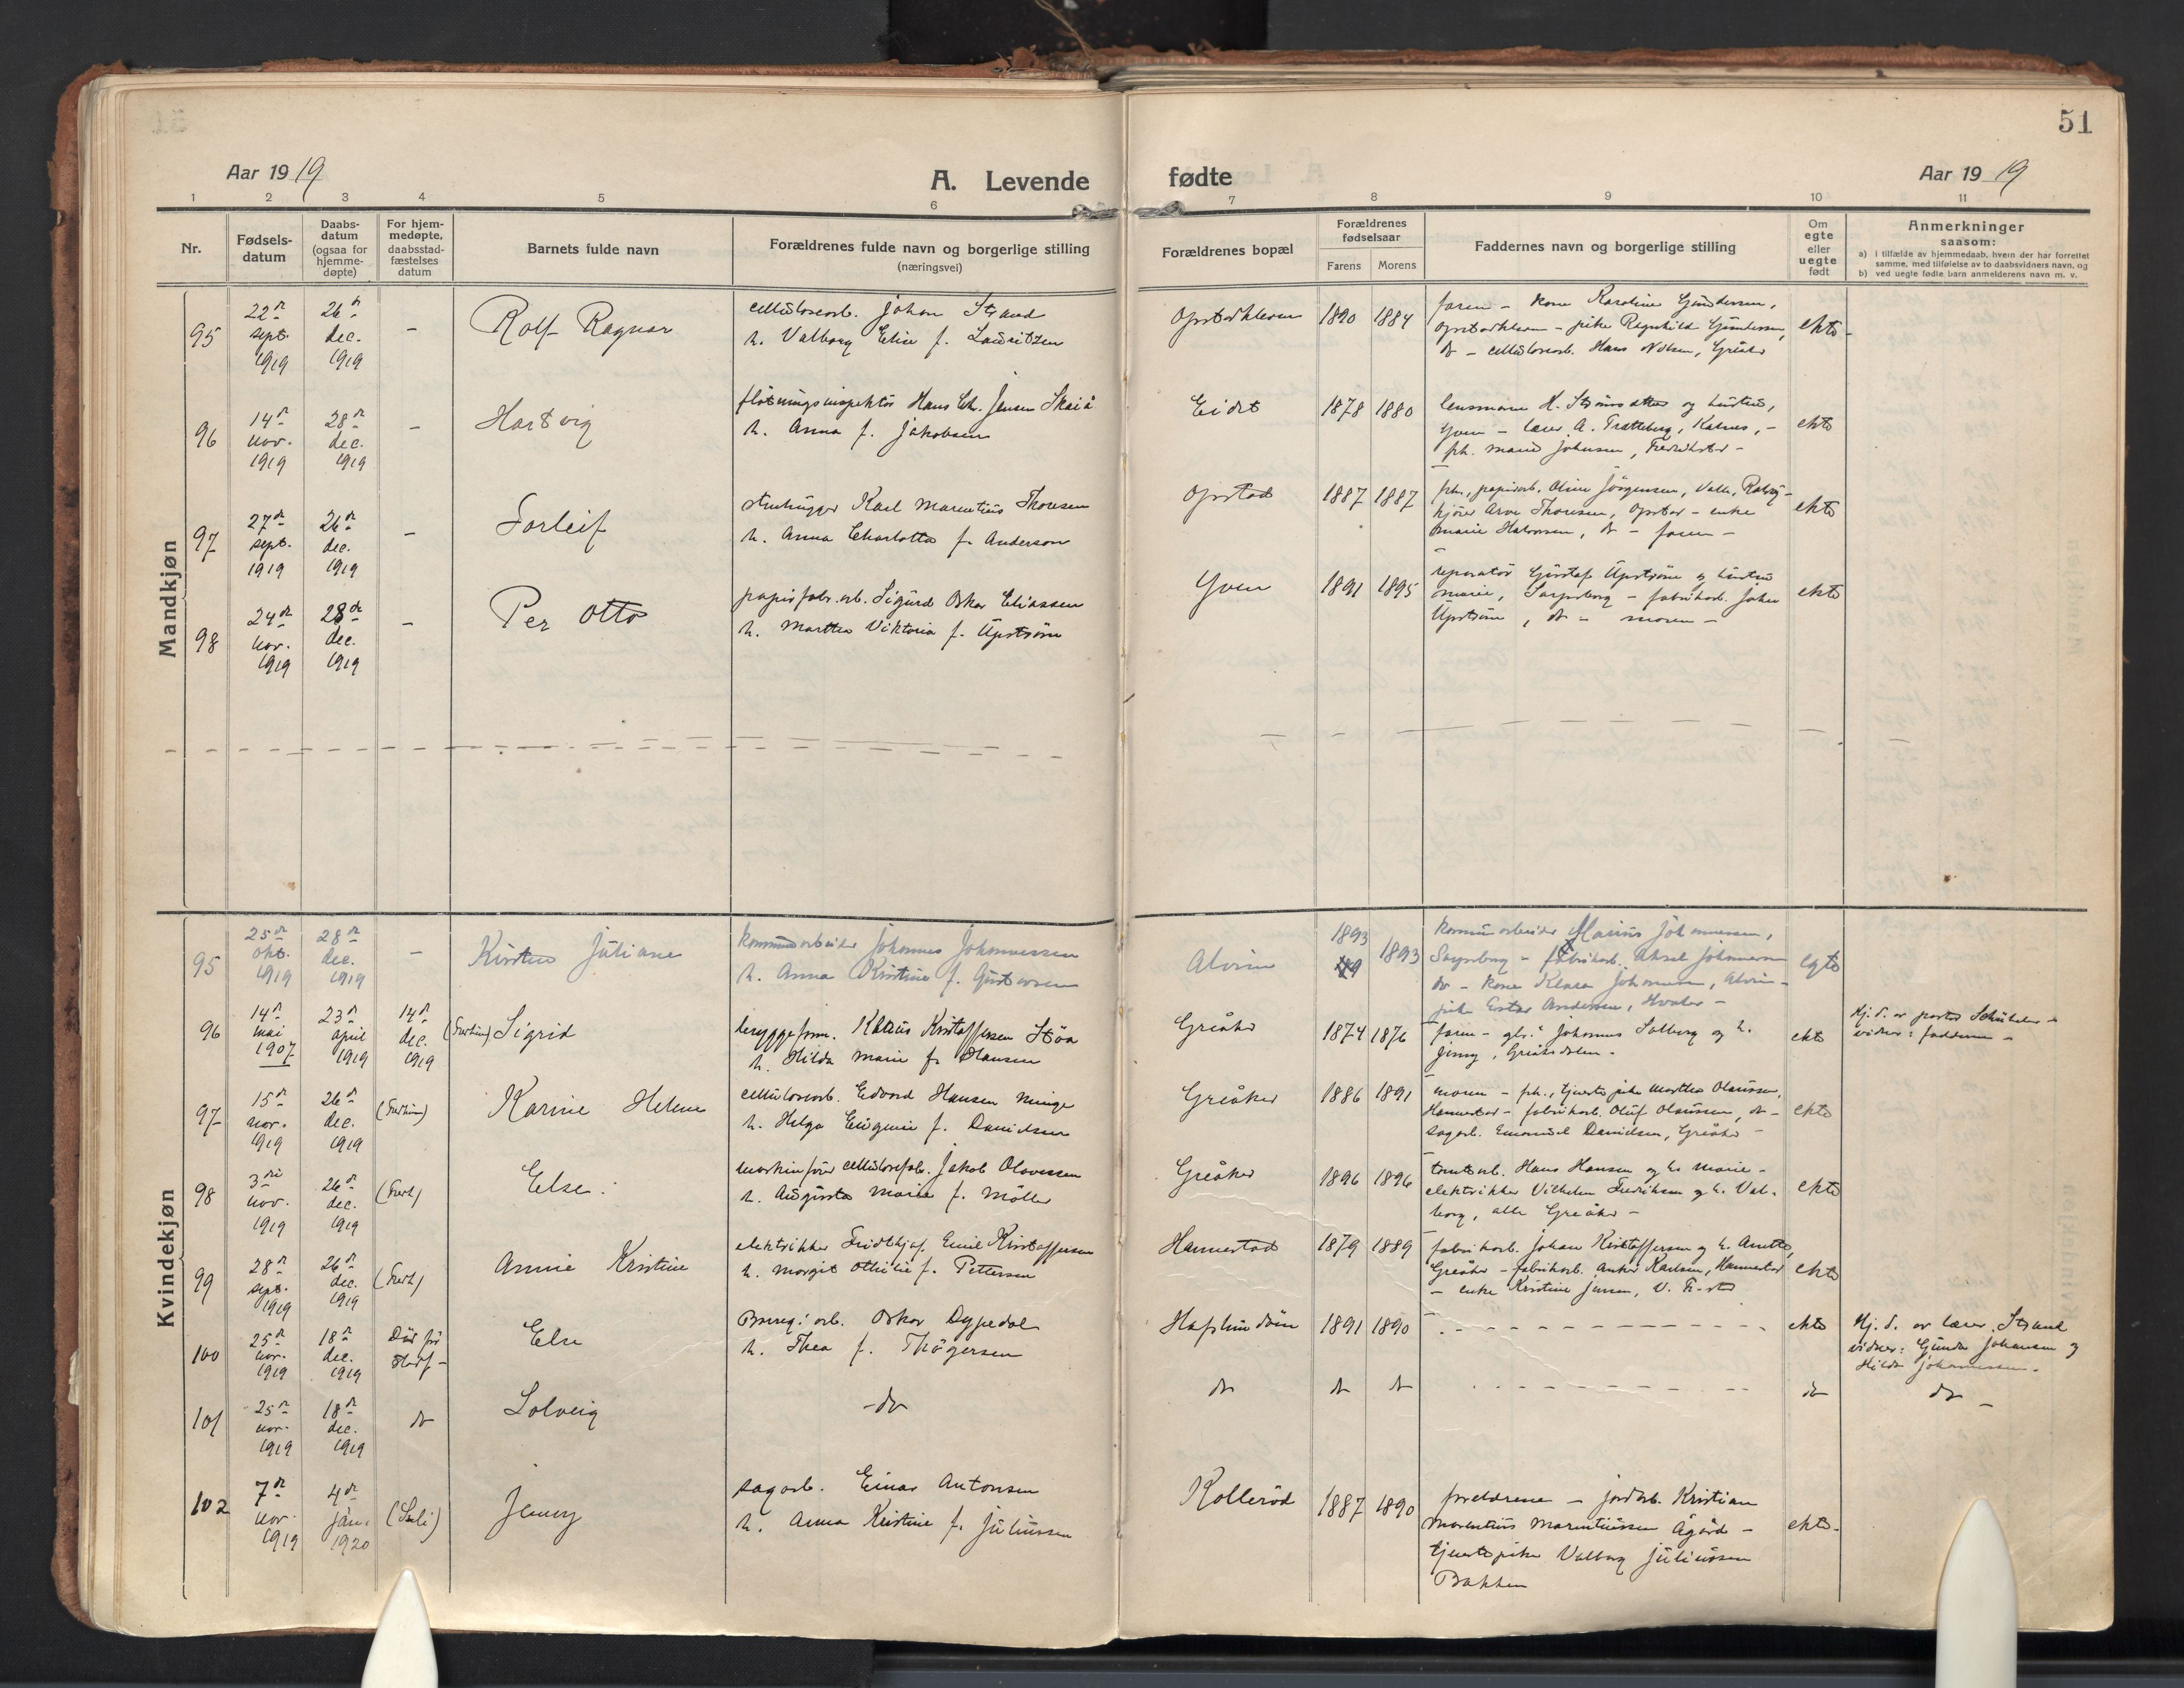 51
Aar 1919
A. Levende
fødte
Aar 1919
1 2 3 4 5 6 7 8 9 10 11
Nr.
Fødsels-
datum
Daabs-
datum
(ogsaa for
hjemme-
døpte)
For hjem-
medøpte,
daabsstad-
fæstelses
datum
Barnets fulde navn
Forældrenes fulde navn og borgerlige stilling
(næringsvei)
Forældrenes bopæl
Forældrenes
fødselsaar
Farens
Morens
Faddernes navn og borgerlige stilling
Om
egte
eller
uegte
født
Anmerkninger
saasom:
a) i tilfælde av hjemmedaab, hvem der har forrettet
samme, med tilføielse av to daabsvidners navn, og
b) ved uegte fødte barn anmelderens navn m. v.
Mandkjøn
95
22de
sept.
1919
26de
dec.
1919
-
Rolf Ragnar
cellulosearb. Johan Strand
h. Valborg Elise f. Lauritzen
1890 1884
faren - kone Karoline Gundersen,
- pike Ragnhild Gundersen,
do - cellulosearb. Hans Nilsen, Greåker
ekte -
96
14de
nov.
1919
28de
dec.
1919
-
Hartvig
fløtningsinspektør Hans Chr. Jensen Skaiå
h. Anna f. Jakobsen
Eidet
1878 1880
lensmann H.
Yven - lærer A. Trætteberg, Kalnes, -
frk. Marie Johnsen, Fredrikstad -
ekte
97
27de
sept.
1919
26de
dec.
1919
-
Torleif
stenhugger Karl Marentius Thoresen
h. Anna Charlotte f. Anderson
Opstad
1887 1887
frk., papirarb. Oline Jörgensen, Valle,
kjører Arve Thoresen, Opstad - enke
Marie Halvorsen, do - faren -
ekte
98
24de
nov.
1919
28de
dec.
1919
-
Per Otto
papirfabr.arb. Sigurd Oskar Eliassen
h. Marthea Viktoria f. Upström
Yven
1891 1895
reparatør Gustaf Upström og hustru
Marie, Sarpsborg - fabrikarb. Johan
Upström, do - moren -
ekte
Kvindekjøn
95
25de
okt.
1919
28de
dec.
1919
-
Kirsten Juliane
kommunearbeider Johannes Johannessen
h. Anna Kristine f. Gustavsen
Alvim
1893
1893
kommunearbeider Marius Johannessen,
Sarpsborg - fabrikarb. Aksel Johannessen
do - kone Klara Johannessen, Alvim -
pike Ester Andersen, Hvaler -
egte
96
14de
mai
1907
23de
april
1919
14de
dec.
1919
Sigrid
bryggeform. Klaus Kristoffersen Stöa
h. Hilda Marie f. Hansen
Greåker
1874 1876
faren - Johannes Solberg og h.
Jenny, Greåkerdalen -
ekte
Hj. d. av pastor
vidner: fadderne -
97
15de
nov.
1919
26de
dec.
1919
Karine Helene
cellulosearb. Edvard Hansen Minge
h. Helga Eugenie f. Danielsen
Greåker
1886 1891
moren - frk., tjenestepike Marthea Olaussen,
Hannestad - fabrikarb. Oluf Olaussen, do -
sagarb. Emanuel Danielsen, Greåker -
ekte
98
3die
nov.
1919
26de
dec.
1919
Else.
maskinfører cellulosefabr. Jakob Olavessen
h. Augusta Marie f. Möller
Greåker
1896 1896
tomtearb. Hans Hansen og h. Marie -
elektriker Vilhelm Fredriksen og h. Val-
borg, alle Greåker -
ekte
99
28de
sept.
1919
26de
dec.
1919
Annie Kristine
elektriker Fridthjof Emil Kristoffersen
h. Margit Othilie f. Pettersen
Hannestad
1879 1889
fabrikarb. Johan Kristoffersen og h. Anette,
Greåker - fabrikarb. Anker Karlsen, Hannestad
- enke Kristine Jensen, V. Fr.stad
ekte
100
25de
nov.
1919
18de
dec.
1919
Död før
stadf -
Else
Oskar Dypedal
h. Thea f. Thögersen
Hafslundsöen
1891 1890
- - - - - - - - - -
ekte
Hj. d. av lærer Strand
vidner: Gunda Johansen og
Hilda Johannessen -
101
25de
nov.
1919
18de
dec.
1919
do
Solveig
- do
do do do
- - - - - - - - - -
do
do -
102
7de
nov.
1919
4de
jan.
1920
Jenny
sagarb. Einar Antonsen
h. Anna Kristine f. Juliussen
Kollerød
1887 1890
foreldrene - jordarb. Kristian
Marentius Marentiussen Ågård -
tjenestepike Valborg Juliussen
Bakken
ekte -